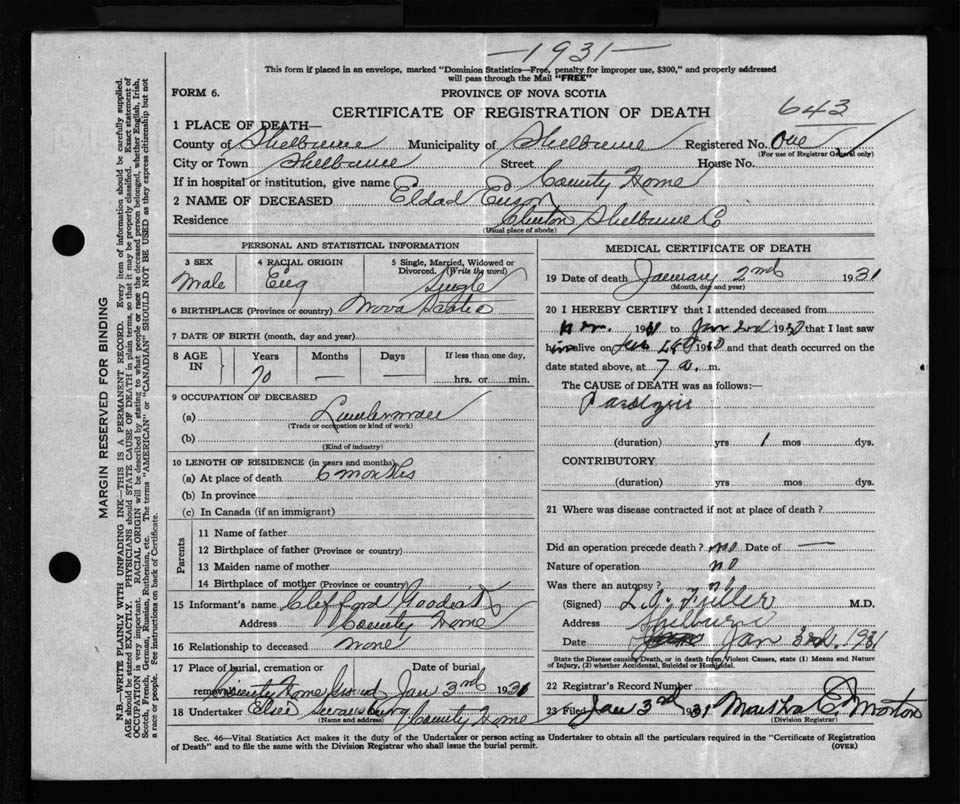 —1931—
This form if placed in an envelope, marked "Dominion Statistics—Free, penalty for improper use, $300," and properly addressed
will pass through the Mail "FREE"
FORM 6. PROVINCE OF NOVA SCOTIA
CERTIFICATE OF REGISTRATION OF DEATH
643
1 PLACE OF DEATH—
County of Shelburne Municipality of Shelburne Registered No. One
(For use of Registrar General only)
City or Town Shelburne Street House No.
If in hospital or institution, give name County Home
2 NAME OF DECEASED Eldad
Residence Shelburne Co
(Usual place of abode)
PERSONAL AND STATISTICAL INFORMATION
3 SEX 4 RACIAL ORIGIN 5 Single, Married, Widowed or
Divorced. (Write the word)
Male Eng Single
6 BIRTHPLACE (Province or country) Nova Scotia
7 DATE OF BIRTH (month, day and year)
8 AGE IN Years Months Days If less than one day,
70 — — hrs. or min.
9 OCCUPATION OF DECEASED
(a) Lumberman
(Trade or occupation or kind of work)
(b)
(Kind of industry)
10 LENGTH OF RESIDENCE (in years and months)
(a) At place of death 6 months
(b) In province
(c) In Canada (if an immigrant)
Parents
11 Name of father
12 Birthplace of father (Province or country)
13 Maiden name of mother
14 Birthplace of mother (Province or country)
15 Informant's name Clifford
Address County Home
16 Relationship to deceased none
17 Place of burial, cremation or removal Date of burial
County Home Ground Jan 3rd 1931
18 Undertaker Elsie Swansburg County Home
(Name and address)
MEDICAL CERTIFICATE OF DEATH
19 Date of death January 2nd 1931
(Month, day and year)
20 I HEREBY CERTIFY that I attended deceased from
19 to Jan 2nd 19 that I last saw
him alive on 19 and that death occurred on the
date stated above, at 7 a. m.
The CAUSE OF DEATH was as follows:—
(duration) yrs 1 mos dys.
CONTRIBUTORY
(duration) yrs. mos. dys.
21 Where was disease contracted if not at place of death?
Did an operation precede death? no Date of —
Nature of operation no
Was there an autopsy? no
(Signed) L.J. Fuller M.D.
Address Shelburne
Date Jan 3rd. 1931
State the Disease causing Death, or in death from Violent Causes, state (1) Means and Nature
of Injury, (2) whether Accidental, Suicidal or Homicidal.
22 Registrar's Record Number
23 Filed Jan 3rd 1931 Martha C. Morton
(Division Registrar)
Sec. 46—Vital Statistics Act makes it the duty of the Undertaker or person acting as Undertaker to obtain all the particulars required in the "Certificate of Registration
of Death" and to file the same with the Division Registrar who shall issue the burial permit. (OVER)
MARGIN RESERVED FOR BINDING
N.B.—WRITE PLAINLY WITH UNFADING INK—THIS IS A PERMANENT RECORD. Every item of information should be carefully supplied.
AGE should be stated EXACTLY. PHYSICIANS should STATE CAUSE OF DEATH in plain terms, so that it may be properly classified. Exact statement of
OCCUPATION is very important. RACIAL ORIGIN will be described by stating to what people or race the deceased person belonged, whether English, Irish,
Scotch, French, German, Russian, Ruthenian, etc. The terms "AMERICAN" or "CANADIAN" SHOULD NOT BE USED as they express citizenship but not
a race or people. See instructions on back of Certificate.